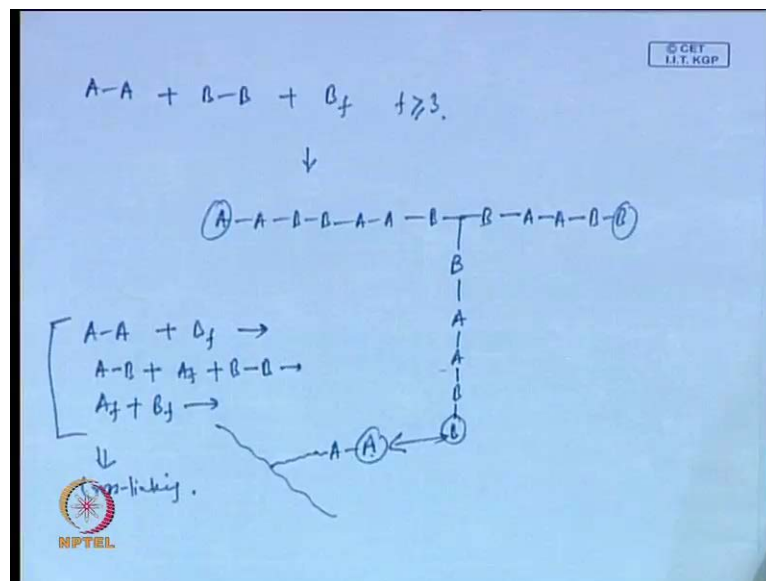 © CET
I.I.T. KGP
A-A + B-B + Bf f⩾3.
↓
A-A-B-B-A-A-B-B-A-A-B-B
B
A
A
B
B
A-A
A-A + Bf →
A-B + Af + B-B →
Af + Bf →
⇓
linking.
NPTEL